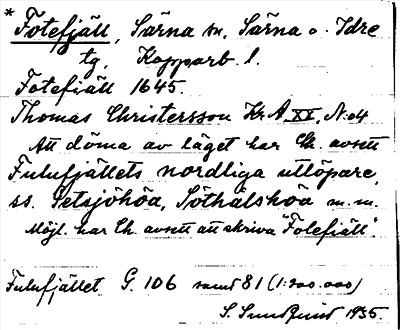 * Fotefjäll, Särna sn, Särna o. Idre
tg, Kopparb. l.
Fotefiäll 1645.
Thomas Christersson Kr A XX, N:o 4
Att döma av läget har Ch. avsett
Fulufjällets nordliga utlöpare,
ss. Getsjöhöa, Göthalshöa m.m.
Möjl. har Ch. avsett att skriva "Folefiäll".
Fulufjället G. 106 samt 81 (1:200.000)
S. Sundquist 1935.